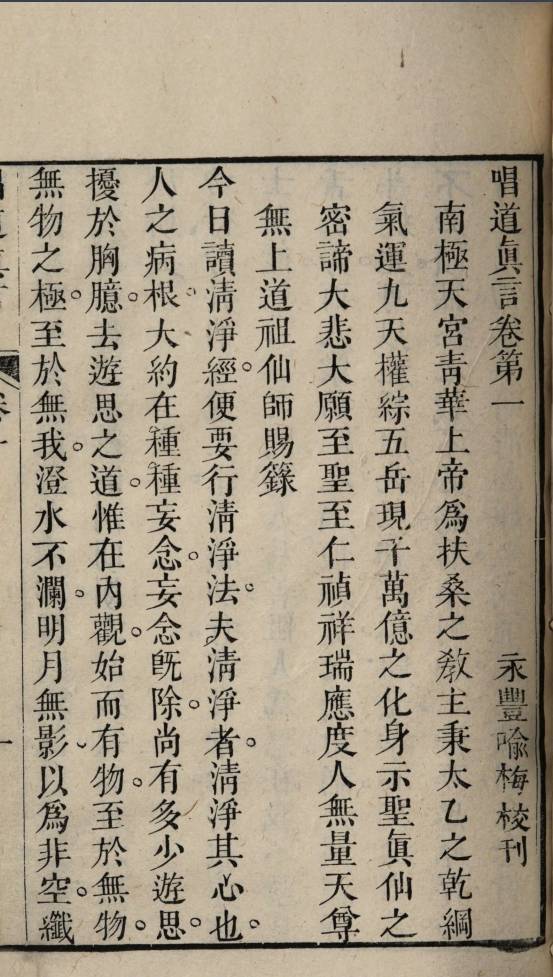 唱道眞言卷第一
永豐喻梅校刊
南極天宮靑華上帝爲扶桑之敎主秉太乙之乾綱
氣運九天權綜五岳現千萬億之化身示聖眞仙之
密諦大悲大願至聖至仁禎祥瑞應度人無量天尊
無上道祖仙師賜籙
今日讀淸淨經。便要行淸淨法。夫淸淨者。淸淨其心也。
人之病根。大約在種種妄念。妄念旣除。尚有多少遊思。
擾於胸臆。去遊思之道。惟在內觀。始而有物。至於無物。
無物之極。至於無我。澄水不瀾。明月無影。以爲非空。纖